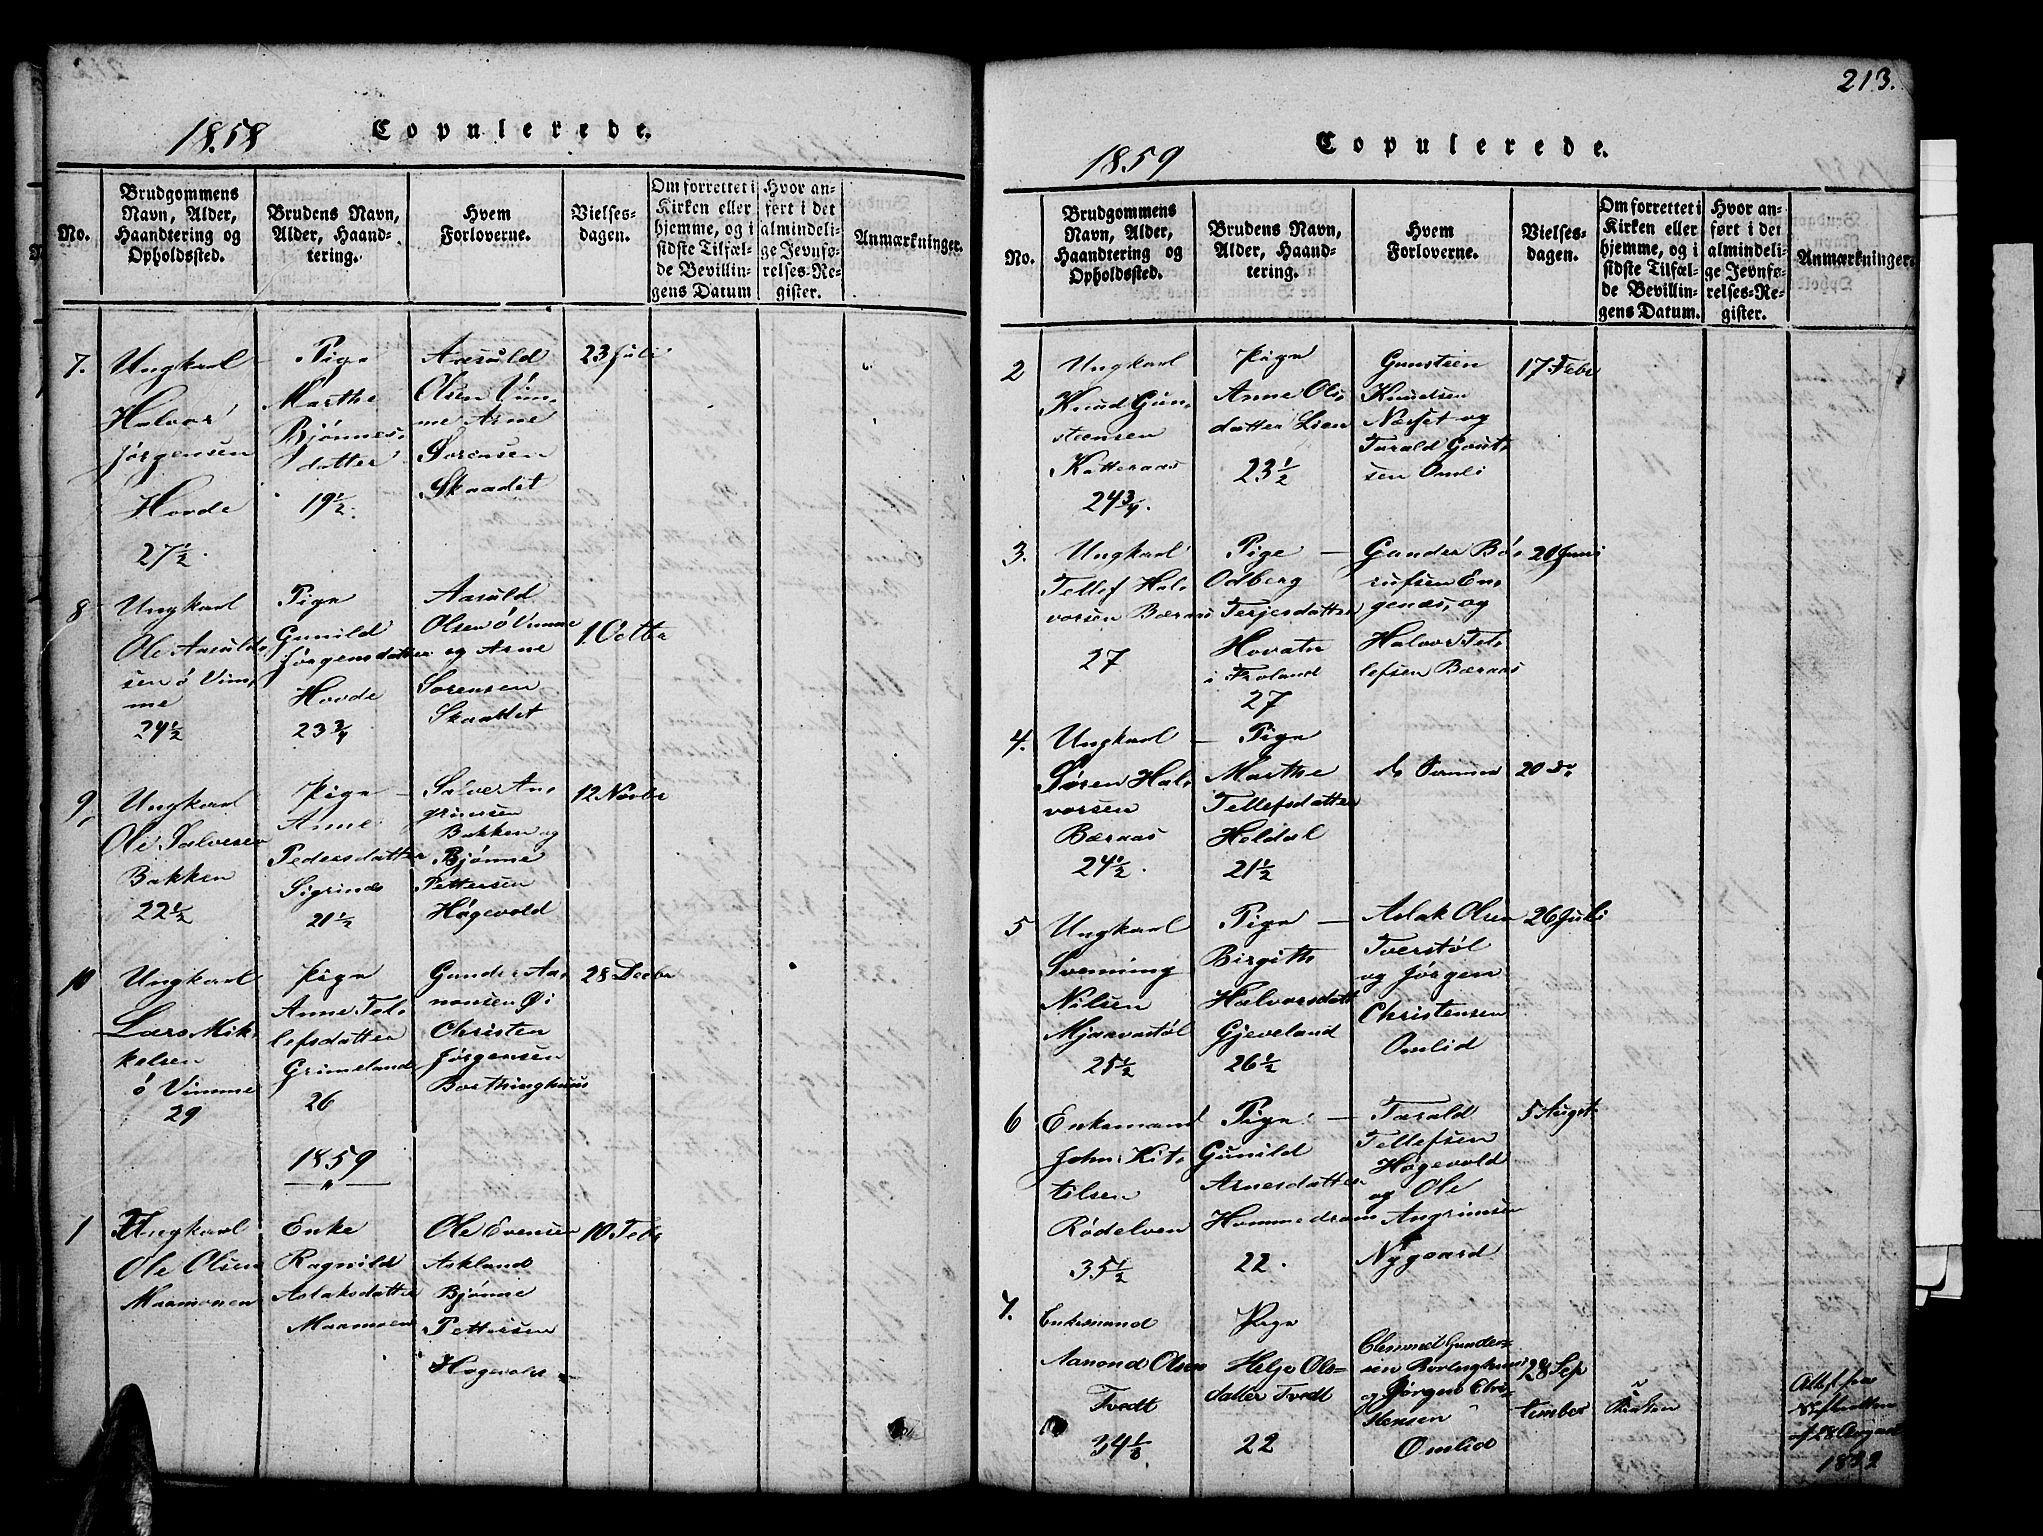 1858 Copulerede.
No.
Brudgommens
Navn, Alder,
Haandtering og
Opholdssted.
Brudens Navn,
Alder, Haand-
tering.
Hvem
Forloverne.
Vielses-
dagen.
Om forrettet i
Kirken eller
hjemme, og i
sidste Tilfæl-
de Bevillin-
gens Datum
Hvor an-
ført i det
almindeli-
ge Jevnfø-
relses-Re-
gister.
Anmærkninger.
7.
Ungkarl
Halvor
Jørgensen
Hovde
27½.
Pige
Marthe
Bjønnes-
datter
19½
Aasuld
Olsen Vim-
me Arne
Sørensen
Skaadet
23 Juli
8
Ungkarl
Ole Aasulds-
sen ø Vim-
me
24½
Pige
Gunild
Jørgensdatter
Hovde
23¾
Aasuld
Olsen ø Vimme
og Arne
Sørensen
Skaadet
1 Octbr
9,
Ungkarl
Ole Salvesen
Bakken
22½
Pige
Anne
Pedersdatter
Sigrinds
21½
Salve An-
grimsen
Bakken og
Bjønne
Pettersen
Høgevold
12 Novbr
10
Ungkarl
Lars Mik-
kelsen
ø Vimme
29
Pige
Anne Tel-
lefsdatter
Grimeland
26
Gunder Aa-
nonsen Øi
Christen
Jørgensen
28 Decbr
1859
1
Ungkarl
Ole Olsen
Maamonen
Enke
Ragnild
Aslaksdatter
Maamoen
Ole Evensen
Askland
Bjønne
Pettersen
Høgevold
10 Febr
213.
1859 Copulerede.
No.
Brudgommens
Navn, Alder,
Haandtering og
Opholdssted.
Brudens Navn,
Alder, Haand-
tering.
Hvem
Forloverne.
Vielses-
dagen.
Om forrettet i
Kirken eller
hjemme, og i
sidste Tilfæl-
de Bevillin-
gens Datum.
Hvor an-
ført i det
almindeli-
ge Jevnfø-
relses-Re-
gister.
Anmærkninger.
2
Ungkarl
Knud Gun-
stensen
Katteraas
24¾.
Pige
Anne Ols-
datter Lien
23½
Gunstein
Knudsen
Næset og
Tarald Gunt-
sen Omli
17 Febr
3.
Ungkarl
Tellef Hal-
vorsen Bæraas
27
Pige
Odberg
Terjesdatter
Hovatn
i Froland
27
Gunder Bø-
rufsen En-
genæs, og
Halvor Tel-
lefsen Bæraas
20 Juni
4.
Ungkarl
Søren Hal-
vorsen
Bæraas
24½.
Pige
Marthe
Tellefsdatter
Heldal
21½
de Samme
20 do
5
Ungkarl
Svenning
Nilsen
Mjaavastøl
25½
Pige
Birgith
Halvorsdatt
Gjeveland
26½
Aslak Olsen
Tverstøl
og Jørgen
Christensen
Omlid
26 Juli
6
Enkemand
John Kit-
telsen
Rødelven
35½
Pige
Gunild
Arnesdatter
Hommedram
22.
Tarald
Tellefsen
Høgevold
og Ole
Angrimsen
Nygaard
5 August
7.
Enkemand
Aanond Olsen
Tvedt
Pige
Helje Ols-
datter Tvedt
22
og Jørgen Chri-
stensen
Omlid
28 Sep
tember
Kirken